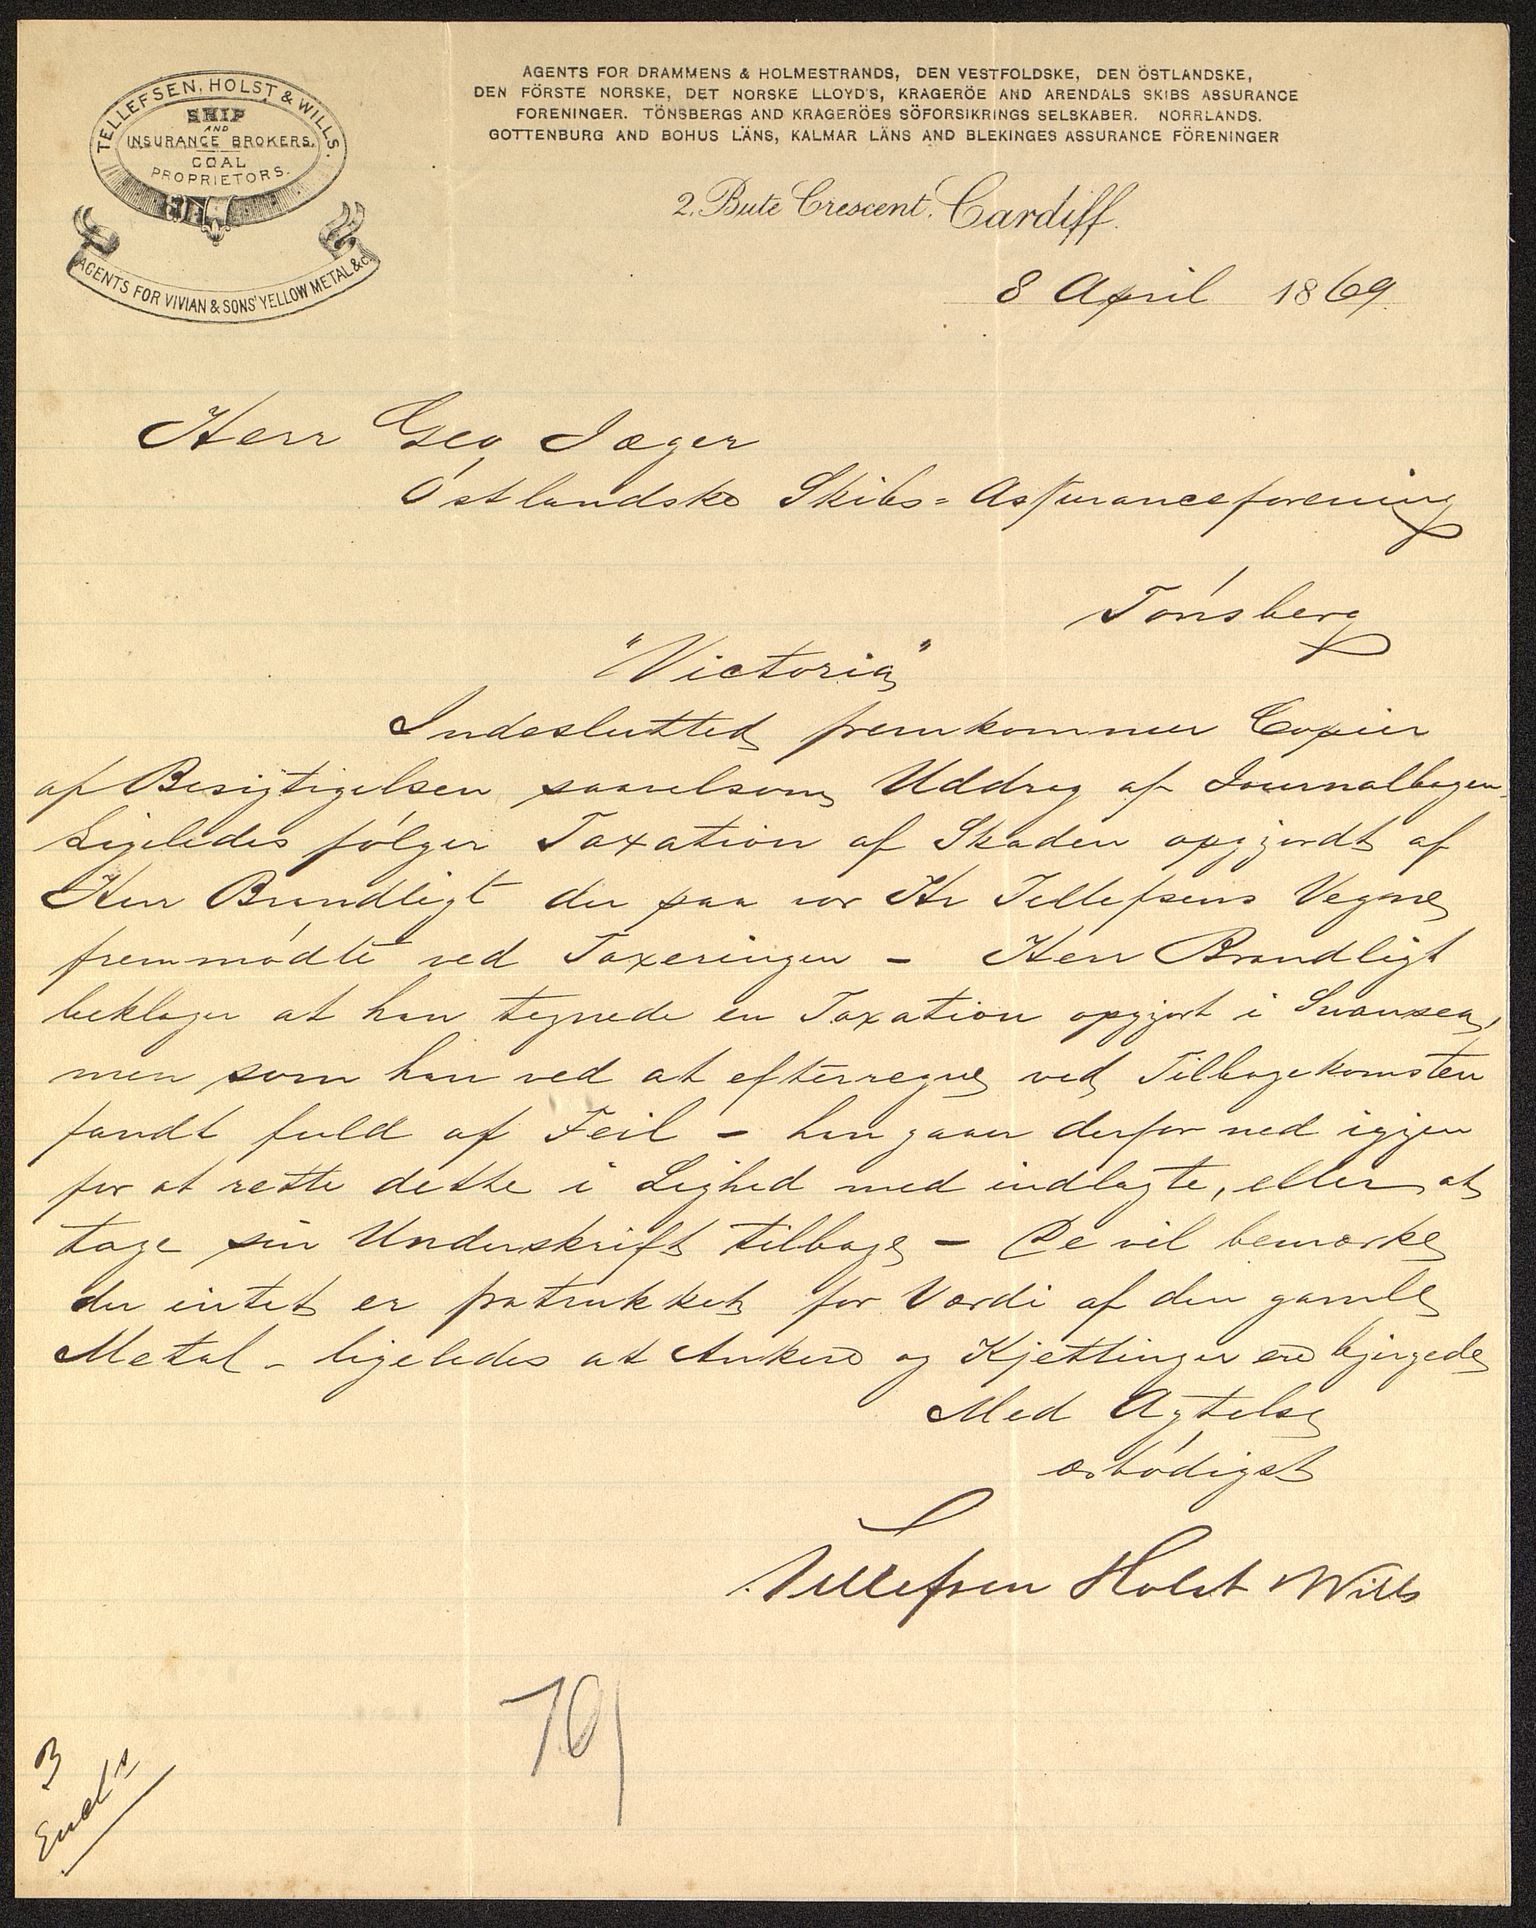 TELLEFSEN, HOLST & WILLS.
SHIP
AND
INSURANCE BROKERS.
COAL
PROPRIETORS.
AGENTS FOR VIVIAN & SONS' YELLOW METAL &c.
AGENTS FOR DRAMMENS & HOLMESTRANDS, DEN VESTFOLDSKE, DEN ÖSTLANDSKE,
DEN FÖRSTE NORSKE, DET NORSKE LLOYD'S, KRAGERÖE AND ARENDALS SKIBS ASSURANCE
FORENINGER. TÖNSBERGS AND KRAGERÖES SÖFORSIKRINGS SELSKABER. NORRLANDS.
GOTTENBURG AND BOHUS LÄNS, KALMAR LÄNS AND BLEKINGES ASSURANCE FÖRENINGER
2, Bute Crescent, Cardiff.
8 April 1869.
Herr Geo Jæger
Östlandske Skibs=Assuranceforening
Tónsberg
"Victoria"
Indesluttet fremkommer Copier
af Besigtigelsen saavelsom Uddrag af Journalbogen.
Ligeledes fólger Taxation af Skaden opgjordt af
Herr Brandligt der paa vor Hr Tellefsens Vegne
fremmódte ved Taxeringen – Herr Brandligt
beklager at han tegnede en Taxation opgjort i Swansea,
men som han ved at efterregne ved Tilbagekomsten
fandt fuld af Feil – han gaaer derfor ned igjen
for at rette dette i Lighed med indlagte, eller at
tage sin Underskrift tilbage – De vil bemærke
der intet er fratrukket for Værdi af den gamle
Metal – ligeledes at Ankere og Kjettinger ere bjergede
Med Agtelse
ærbódigst
Tellefsen Holst & Wills
3
Encl's